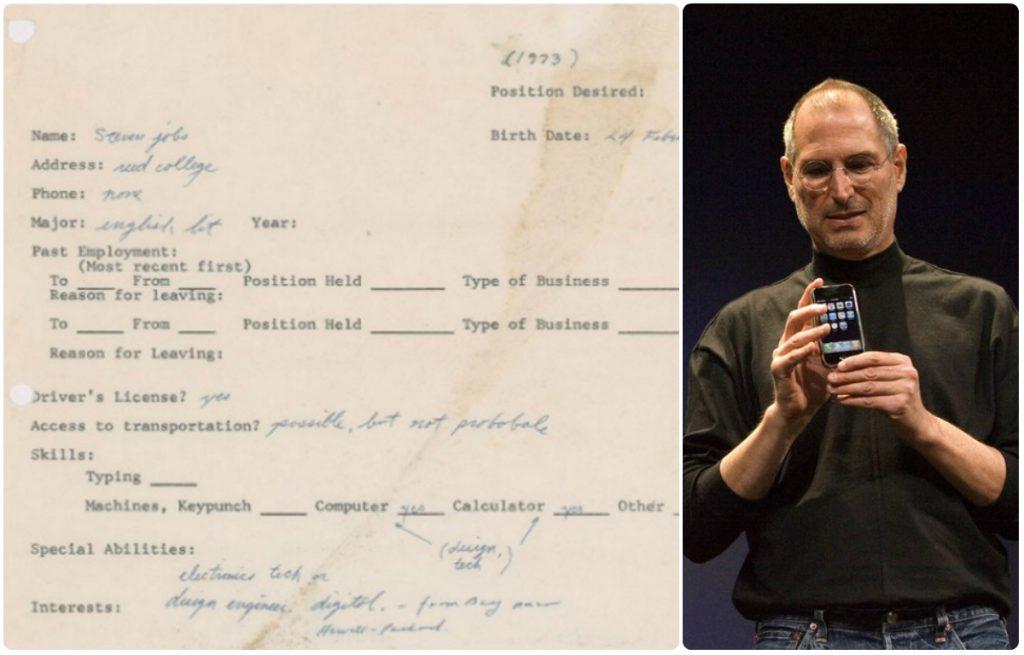 (1973)
Position Desired:
Name: Steven jobs
Birth Date: 24 Febr
Address: reed college
Phone: none
Major: english lit Year:
Past Employment:
(Most recent first)
To ____ From ____ Position Held ________ Type of Business ______
Reason for leaving:
To _____ From ____ Position Held _________ Type of Business ______
Reason for Leaving:
Driver's License? yes
Access to transportation? possible, but not probable
Skills:
Typing _____
Machines, Keypunch _____ Computer yes Calculator yes Other
(design,
tech)
Special Abilities:
electronics tech or
Interests: design engineer. digital. - from Bay
Hewett-Packard.